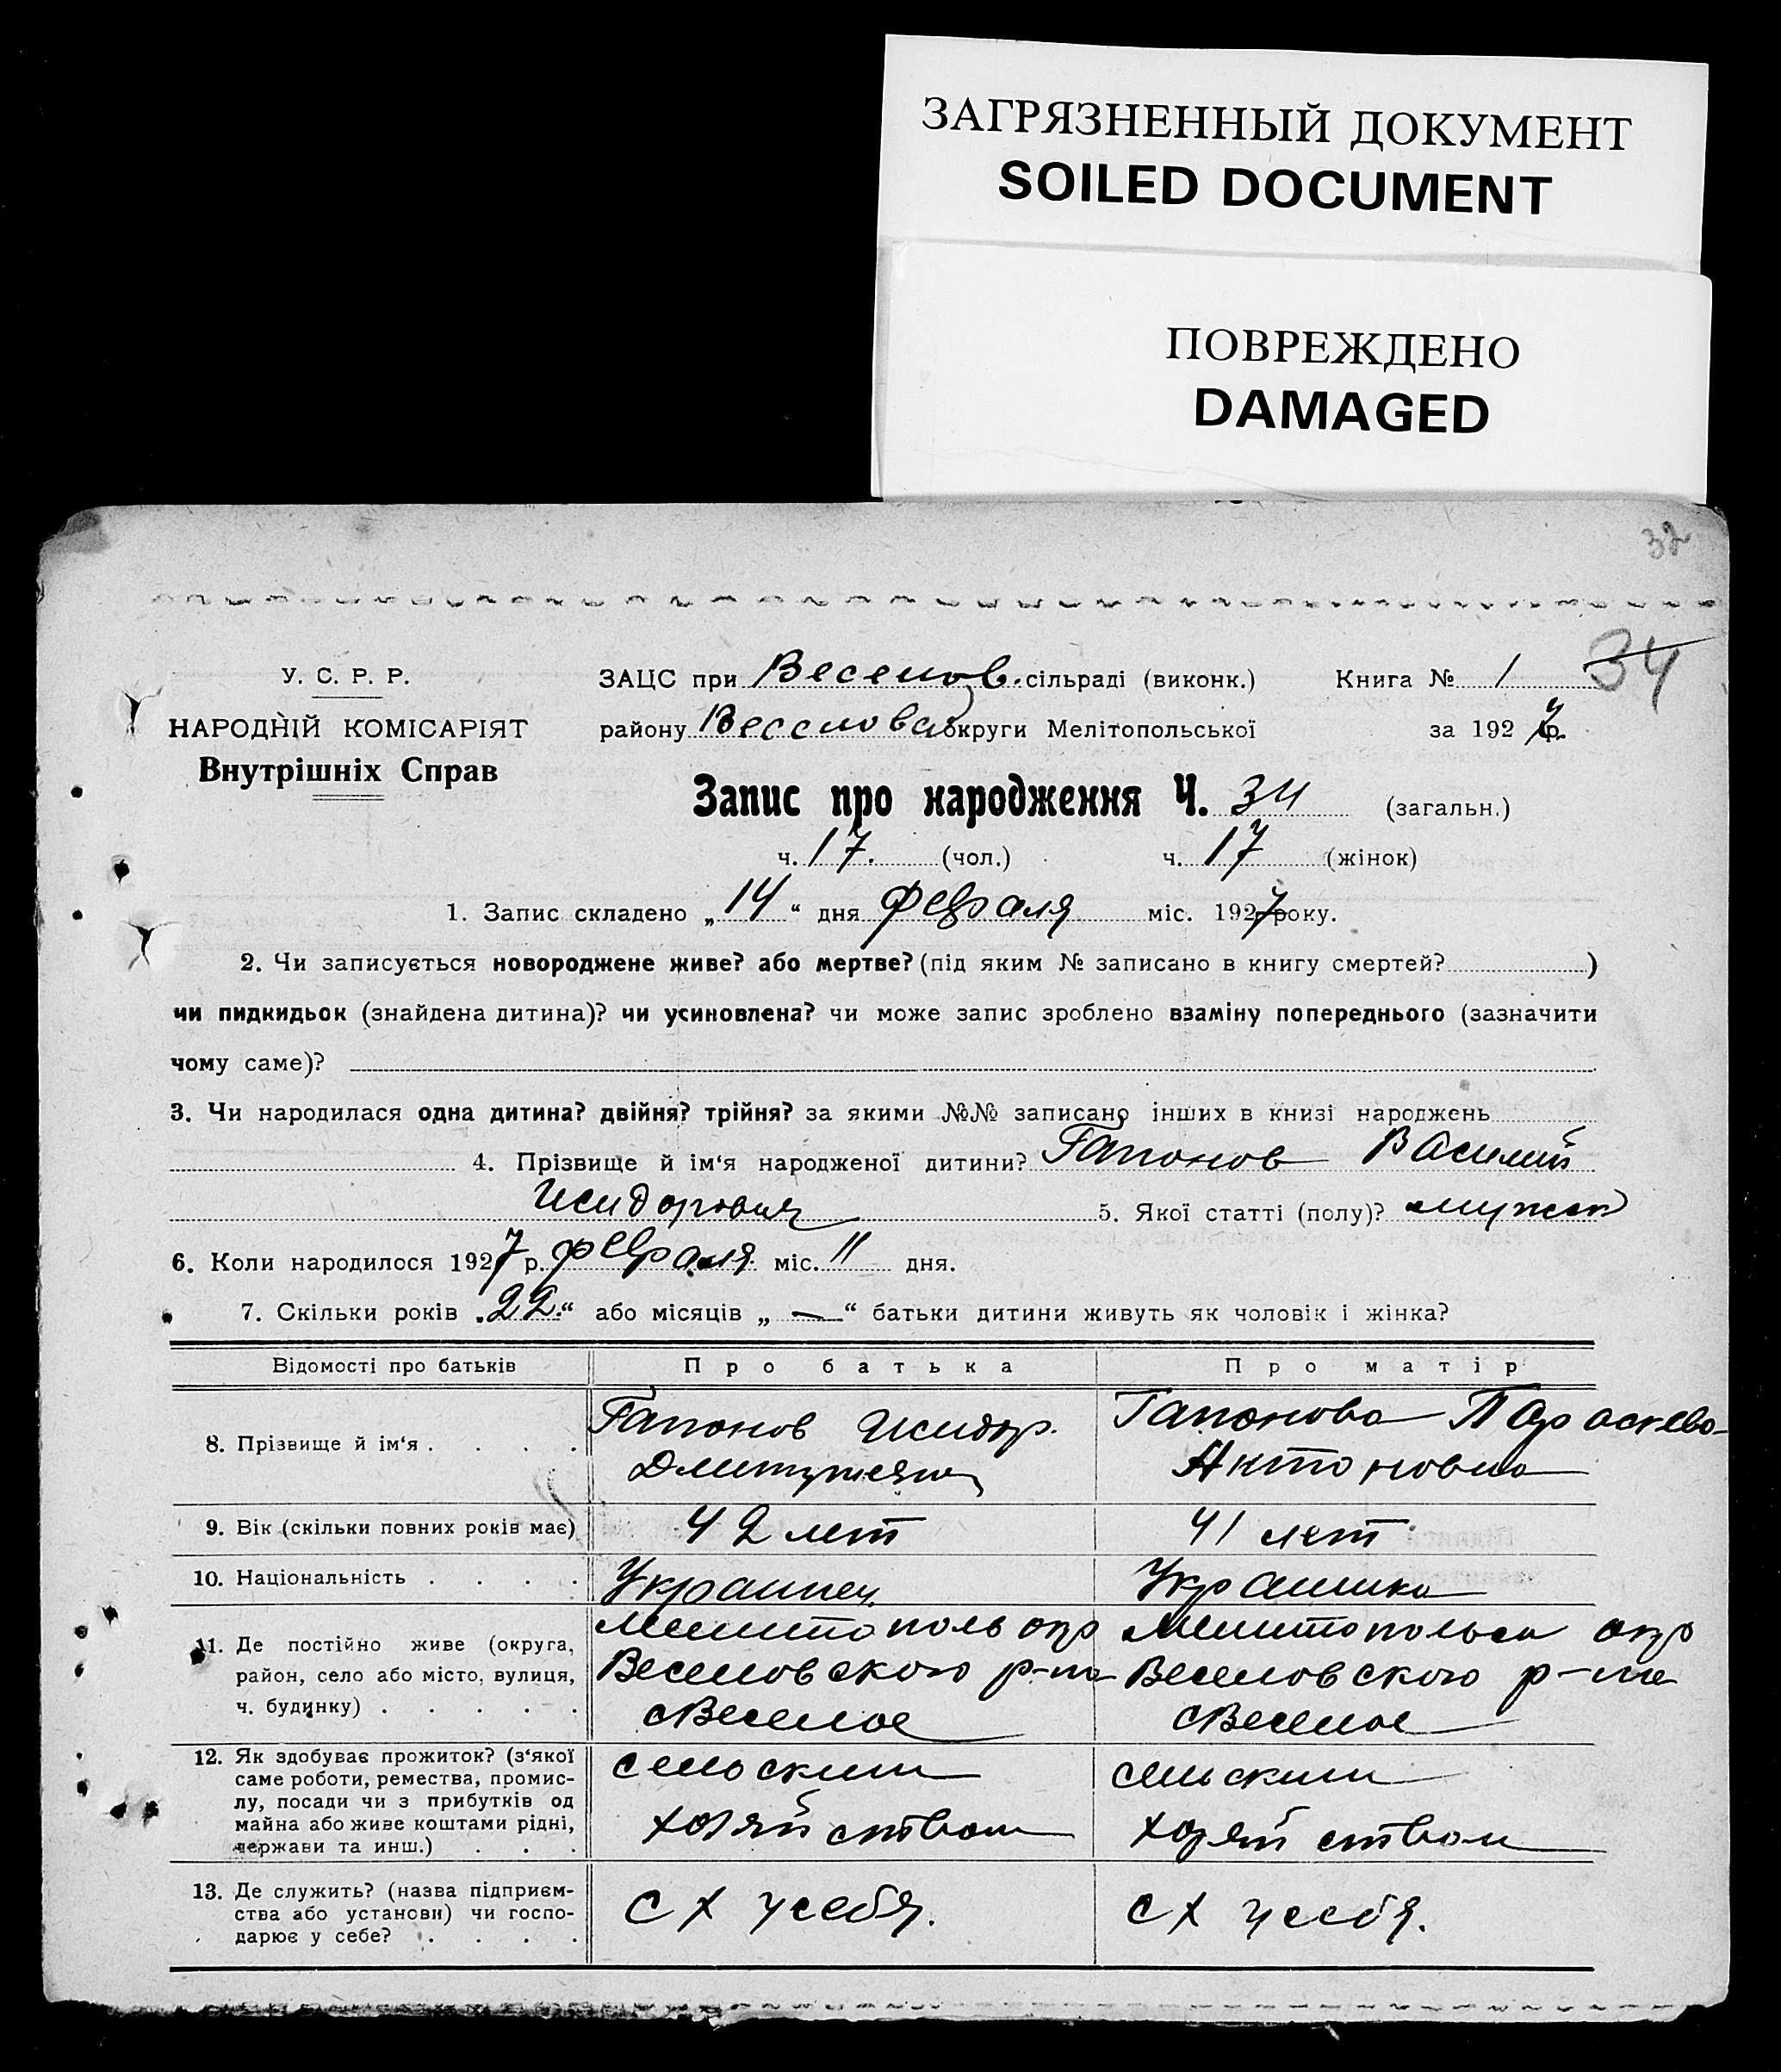 ЗАГРЯЗНЕННЫЙ ДОКУМЕНТ
SOILED DOCUMENT
ПОВРЕЖДЕНО
DAMAGED
32
34
У. С. Р. Р.
НАРОДНІЙ КОМІСАРІЯТ
Внутрішніх Справ
ЗАЦС при Веселов. сільраді (виконк.) Книга № 1
району Веселовск округи Мелітопольської за 1927 р.
Запис про народження Ч. 34 (загальн.)
ч. 17. (чол.) ч. 17 (жінок)
1. Запис складено „14“ дня февраля міс. 1927 року.
2. Чи записується новороджене живе? або мертве? (під яким № записано в книгу смертей? )
чи пидкидьок (знайдена дитина)? чи усиновлена? чи може запис зроблено взаміну попереднього (зазначити
чому саме)?
3. Чи народилася одна дитина? двійня? трійня? за якими №№ записано інших в книзі народжень
4. Прізвище й ім‘я народженої дитини? Гапонов Василий
Исидорович 5. Якої статті (полу)? мужск
6. Коли народилося 1927 р. февраля міс. 11 дня.
7. Скільки років „22“ або місяців „—“ батьки дитини живуть як чоловік і жінка?
Відомості про батьків Про батька Про матір
8. Прізвище й ім‘я . . . . Гапонов Исидор. Гапонова Параскева
Дмитриевич Антоновна
9. Вік (скільки повних років має) 42 лет 41 лет
10. Національність . . . . Украинец Украинка
11. Де постійно живе (округа, Мелитополь окр Мелитопольск окр
район, село або місто, вулиця, Веселовского р-на Веселовского р-на
ч. будинку) . . . . . с Веселое с Веселое
12. Як здобуває прожиток? (з‘якої
саме роботи, ремества, промис-
лу, посади чи з прибутків од
майна або живе коштами рідні,
держави та инш.) . . .
сельским сельским
хозяйством хозяйством
13. Де служить? (назва підприєм-
ства або установи) чи госпо-
дарює у себе? . . . .
С Х у себя. с х у себя.